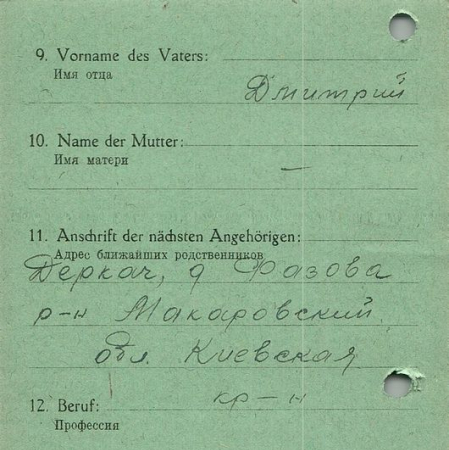 9. Vorname des Vaters:
Имя отца
Дмитрий
10. Name der Mutter:
Имя матери
—
11. Anschrift der nächsten Angehörigen:
Адрес ближайших родственников
Деркач, д Фазова
р-н Макаровский
обл. Киевская
12. Beruf: кр-н
Профессия